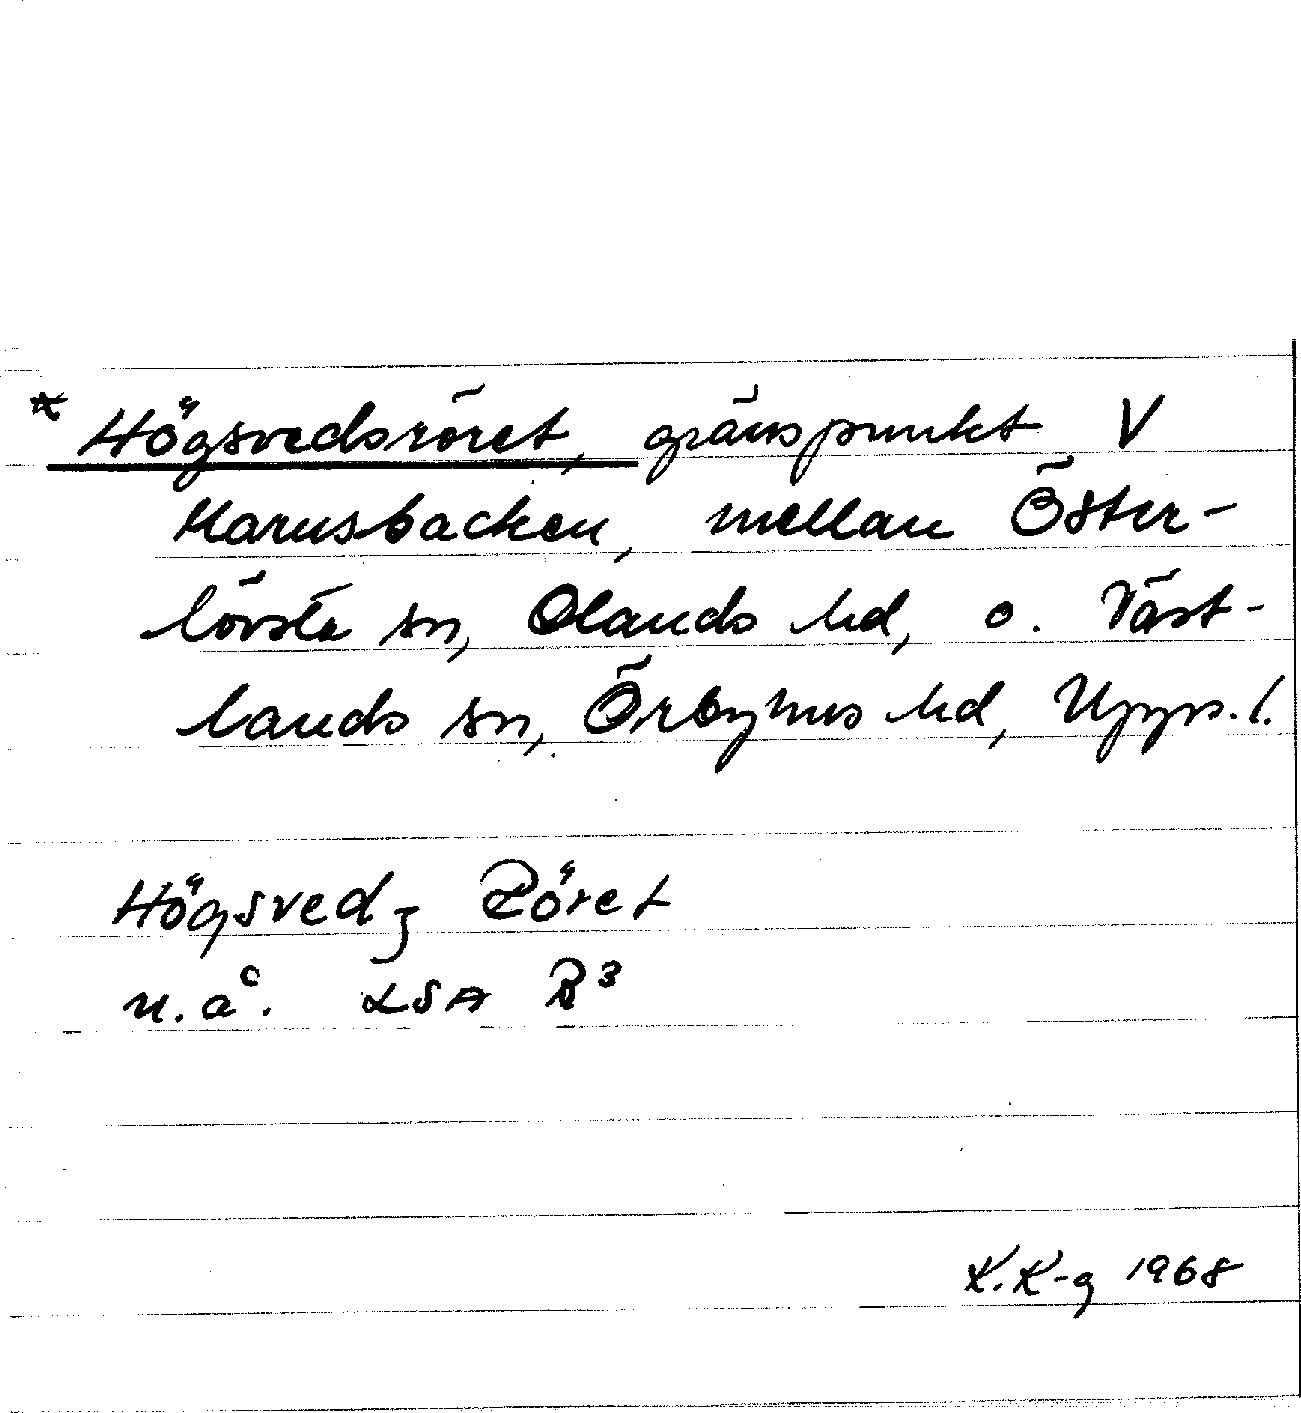 * Högsvedsröret, gränspunkt V
Karusbacken, mellan Öster-
lövsta sn, Olands hd, o. Väst-
lands sn, Örbyhus hd, Upps. l.
Högsvedz Röret
u.å. LSA B3
K. K-g 1968